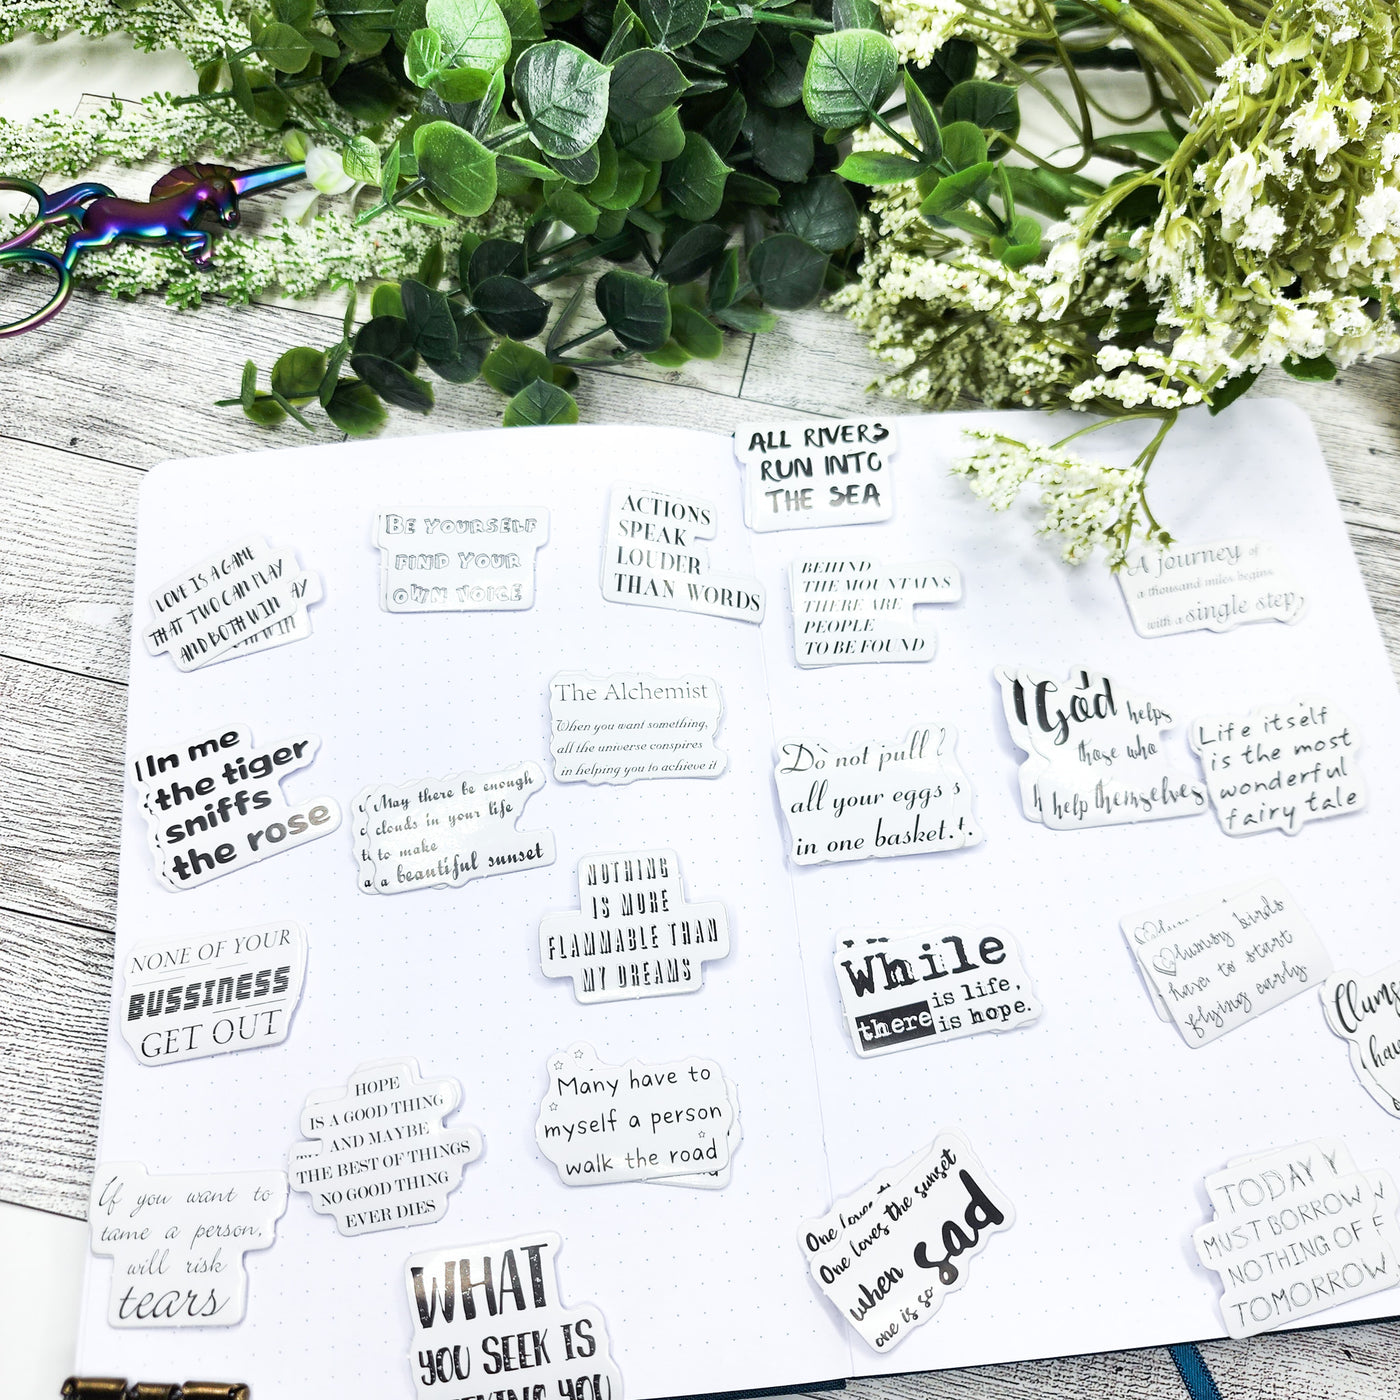 ALL RIVERS
RUN INTO
THE SEA
BE YOURSELF
FIND YOUR
OWN VOICE
ACTIONS
SPEAK
LOUDER
THAN WORDS
LOVE IS A GAME
THAT TWO CAN PLAY
AND BOTH WIN
AY
WIN
BEHIND
THE MOUNTAINS
THERE ARE
PEOPLE
TO BE FOUND
A journey of
a thousand miles begins
with a single step
The Alchemist
When you want something,
all the universe conspires
in helping you to achieve it
God helps
those who
help themselves
Life itself
is the most
wonderful
fairy tale
In me
the tiger
sniffs
the rose
May there be enough
clouds in your life
to make
a beautiful sunset
Do not pull
all your eggs
in one basket.
NOTHING
IS MORE
FLAMMABLE THAN
MY DREAMS
NONE OF YOUR
BUSSINESS
GET OUT
While
there is life,
is hope.
Clumsy birds
have to start
flying early
Clums
hav
HOPE
IS A GOOD THING
AND MAYBE
THE BEST OF THINGS
NO GOOD THING
EVER DIES
Many have to
myself a person
walk the road
If you want to
tame a person,
will risk
tears
One loves
One loves the sunset
when sad
one is so
TODAY
MUST BORROW
NOTHING OF
TOMORROW
WHAT
YOU SEEK IS
YOU